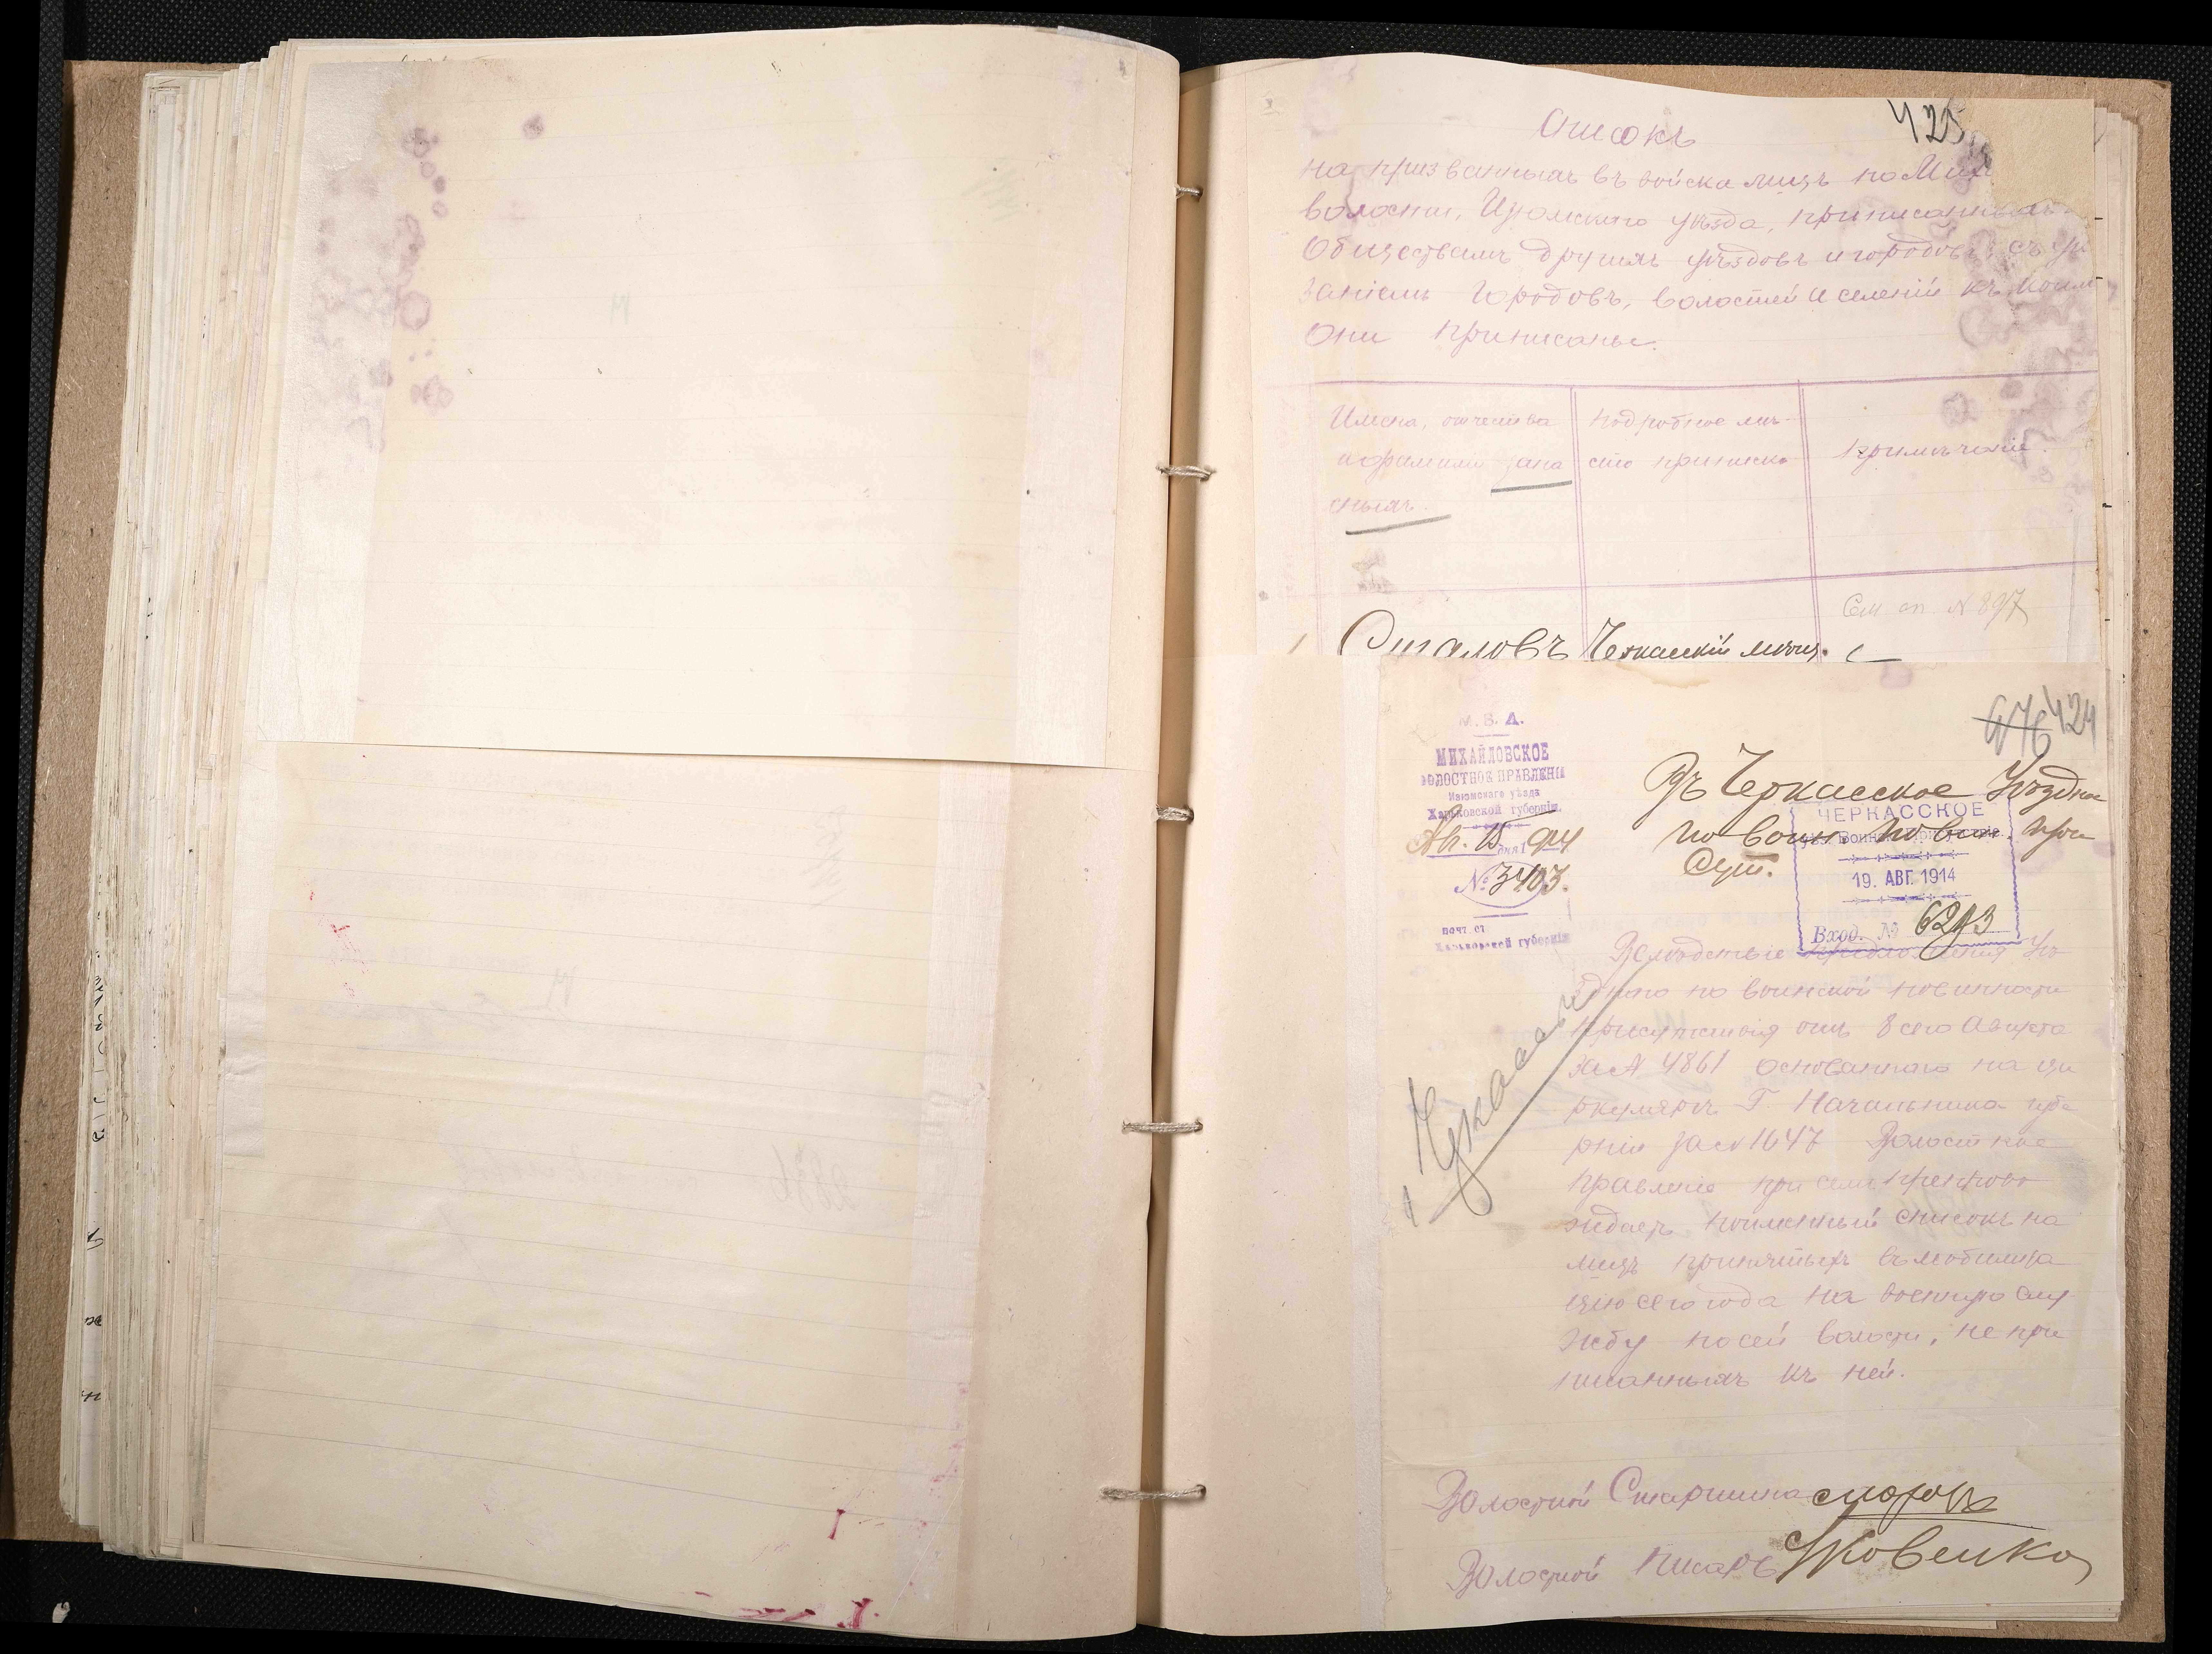 425
Списокъ
на призванныхъ въ войска лицъ по Мих
волости, Изюмскаго уѣзда, приписанныхъ
Обществамъ другихъ уѣздовъ и городовъ съ ука
заніемъ городовъ, волостей и селеній къ коимъ
Они приписаны.
Имена, отчества
и фамиліи запа
сныхъ.
Подробное мѣ-
сто приписки
Примѣчаніе.
Сем сп № 897
1 Черкасскій мѣщ.
424
М. В. Д.
МИХАЙЛОВСКОЕ
ВОЛОСТНОЕ ПРАВЛЕНІЕ
Изюмскаго уѣзда
Харьковской губерніи.
Ав. 15 дня 1914
№ 3403.
почт. ст
Харьковской губерніи
Въ Черкасское Уѣздное
по воин. повин. При
сут.
ЧЕРКАССКОЕ
19. АВГ. 1914
Вход. № 6293
Вслѣдствіе предложенія Уѣ
зднаго по воинской повинности
присутствія отъ 8 сего Августа
за № 4861 основаннаго на ци
ркулярѣ Г. Начальника губе
рніи за № 1647 Волостное
правленіе при семъ препрово
ждаетъ поименный списокъ на
лицъ принятыхъ въ мобилиза
цію сего года на военную слу
жбу по сей волости, не при
писанныхъ къ ней.
Черкассы
Волостной Старшина
Волостной Писарь Яковенко